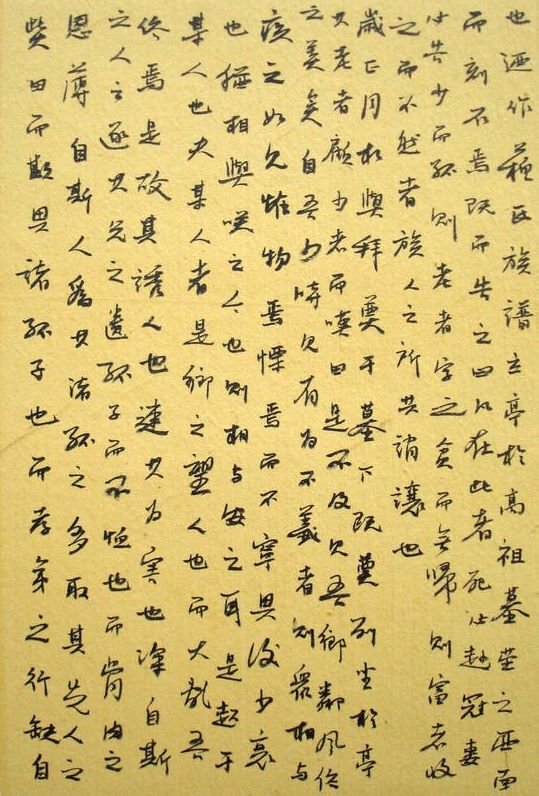 也迺作蘇氏族譜立亭於高祖墓塋之西南
而刻石焉既而告之曰凡在此者死必赴冠妻
必告少而孤則老者字之貧而無歸則富者收
之而不然者族人之所共誚讓也
歲正月相與拜奠于墓下既奠列坐於亭
其老者顧少者而嘆曰是不及見吾鄉鄰風俗
之美矣自吾少時見有为不義者則眾相与
疾之如見怪物焉慄焉而不寧其後少衰
也猶相與笑之今也則相与安之耳是起于
某人也夫某人者是鄉之望人也而大亂吾
俗焉是故其誘人也速其为害也深自斯
之人之逐其兄之遺孤子而不恤也而骨肉之
恩薄自斯人為其諸孤之多取其先人之
貲田而欺其諸孤子也而孝弟之行缺自